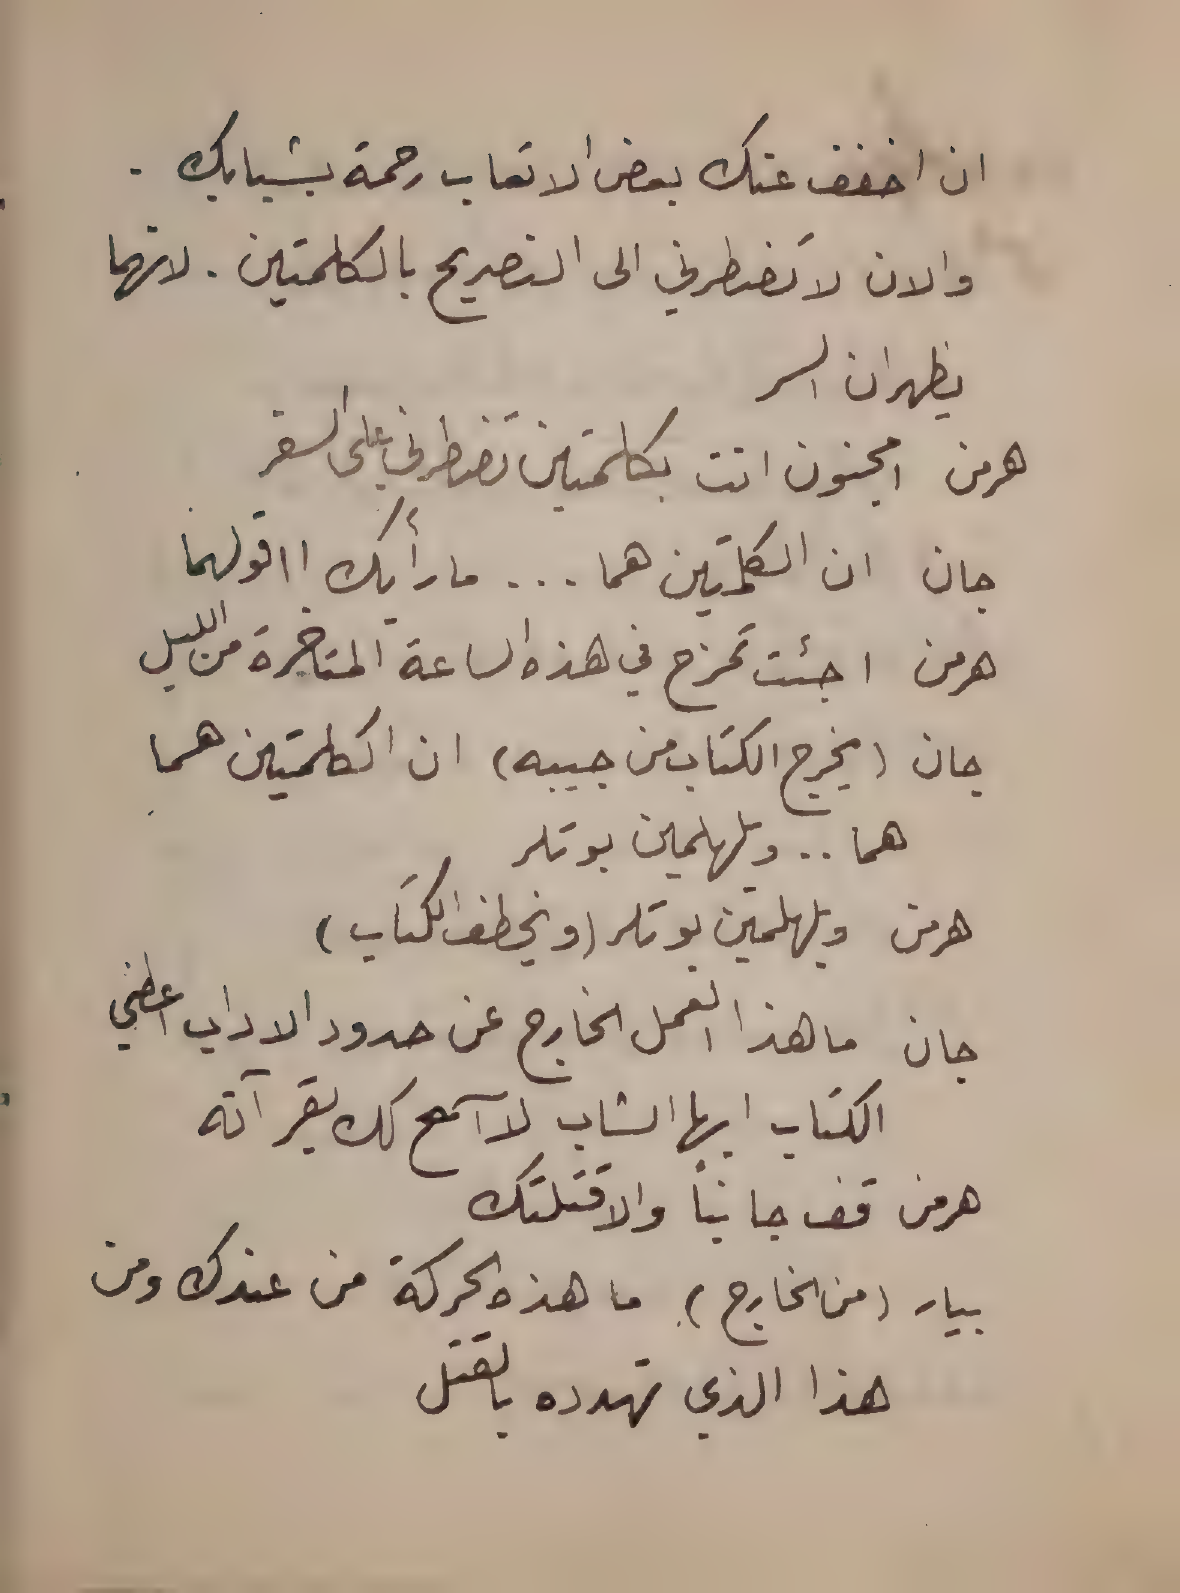 ان اخفف عنك بعض الاتعاب رحمة بشبابك .
والان لا تضطرني الى التصريح بالكلمتين . لانهما
يظهران السر
هرمن امجنون انت بكلمتين تضطرني على السفر
جان ان الكلمتين هما ... ما رأيك ااقولهما
هرمن اجئت تمزح في هذه الساعة المتاخرة من الليل
جان (يخرج الكتاب من جيبه) ان الكلمتين هما
هما .. ويلهلمين بوتلر
هرمن ويلهلمين بوتلر (ويخطف الكتاب)
جان ما هذا العمل الخارج عن حدود الاداب اعطني
الكتاب ايها الشاب لا آسمح لك بقرآته
هرمن قف جانباً والا قتلتك
بيار (من الخارج) ما هذه الحركة من عندك ومن
هذا الذي تهدده بالقتل